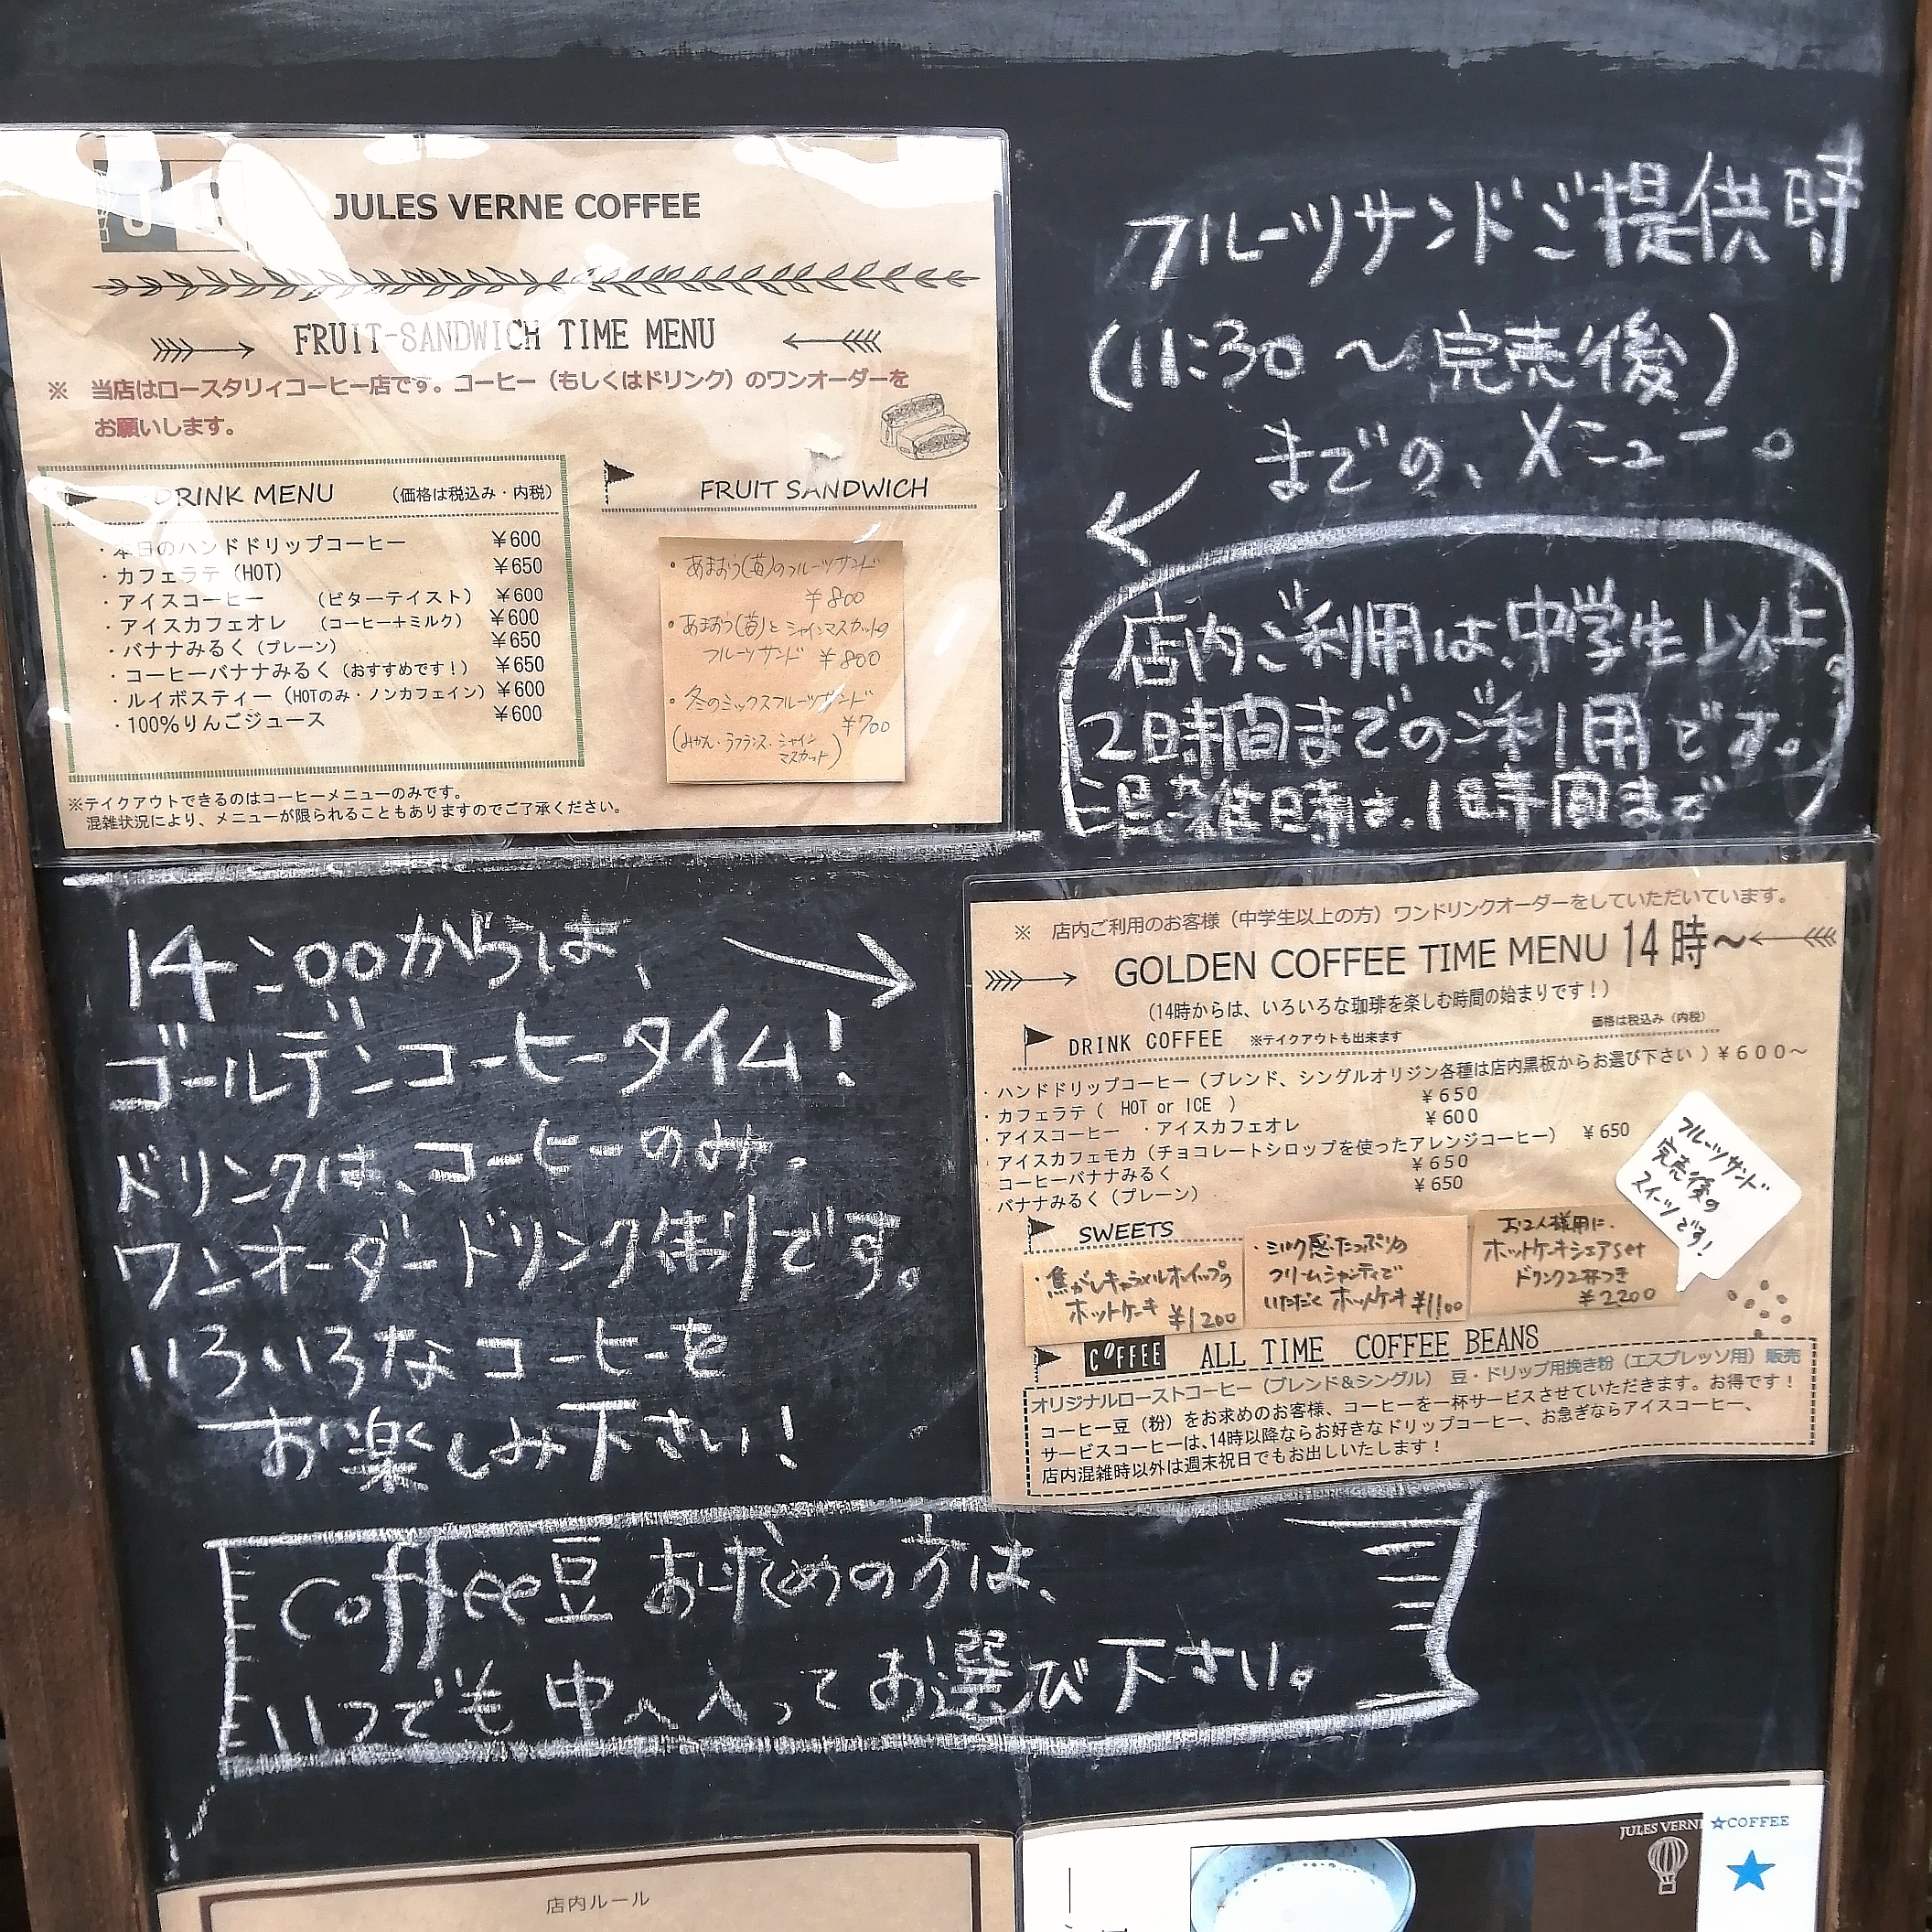 JULES VERNE COFFEE
FRUIT-SANDWICH TIME MENU
※ 当店はロースタリィコーヒー店です。コーヒー（もしくはドリンク）のワンオーダーを
お願いします。
DRINK MENU （価格は税込み・内税）
・本日のハンドドリップコーヒー ￥600
・カフェラテ（HOT） ￥650
・アイスコーヒー （ビターテイスト） ￥600
・アイスカフェオレ （コーヒー＋ミルク） ￥600
・バナナみるく（プレーン） ￥650
・コーヒーバナナみるく（おすすめです！） ￥650
・ルイボスティー（HOTのみ・ノンカフェイン） ￥600
・100%りんごジュース ￥600
※テイクアウトできるのはコーヒーメニューのみです。
混雑状況により、メニューが限られることもありますのでご了承ください。
FRUIT SANDWICH
・あまおう(苺)のフルーツサンド
￥800
・あまおう(苺)とシャインマスカットの
フルーツサンド ￥800
・冬のミックスフルーツサンド
￥700
(みかん・ラフランス・シャイン
マスカット)
フルーツサンドご提供時
(11:30〜完売後)
までの、メニュー。
店内ご利用は、中学生以上。
2時間までのご利用です。
混雑時は、1時間まで
14:00からは、
ゴールデンコーヒータイム!
ドリンクは、コーヒーのみ。
ワンオーダードリンク制です。
いろいろなコーヒーを
お楽しみ下さい!
※ 店内ご利用のお客様（中学生以上の方）ワンドリンクオーダーをしていただいています。
GOLDEN COFFEE TIME MENU 14時〜
（14時からは、いろいろな珈琲を楽しむ時間の始まりです！）
価格は税込み（内税）
DRINK COFFEE ※テイクアウトも出来ます
・ハンドドリップコーヒー（ブレンド、シングルオリジン各種は店内黒板からお選び下さい ）￥６００〜
・カフェラテ（ HOT or ICE ） ￥650
・アイスコーヒー ・アイスカフェオレ ￥600
・アイスカフェモカ（チョコレートシロップを使ったアレンジコーヒー） ￥650
コーヒーバナナみるく ￥650
バナナみるく（プレーン） ￥650
フルーツサンド
完売後の
スイーツです!
SWEETS
・焦がしキャラメルホイップの
ホットケーキ ￥1200
・ミルク感たっぷりの
クリームシャンティで
いただく ホットケーキ ￥1100
お2人様用に、
ホットケーキシェアset
ドリンク2杯つき
￥2200
COFFEE ALL TIME COFFEE BEANS
オリジナルローストコーヒー（ブレンド＆シングル） 豆・ドリップ用挽き粉（エスプレッソ用）販売
コーヒー豆（粉）をお求めのお客様、コーヒーを一杯サービスさせていただきます。お得です！
サービスコーヒーは、14時以降ならお好きなドリップコーヒー、お急ぎならアイスコーヒー、
店内混雑時以外は週末祝日でもお出しいたします！
Coffee豆 お求めの方は、
いつでも中へ入ってお選び下さい。
店内ルール
JULES VERNE ☆COFFEE